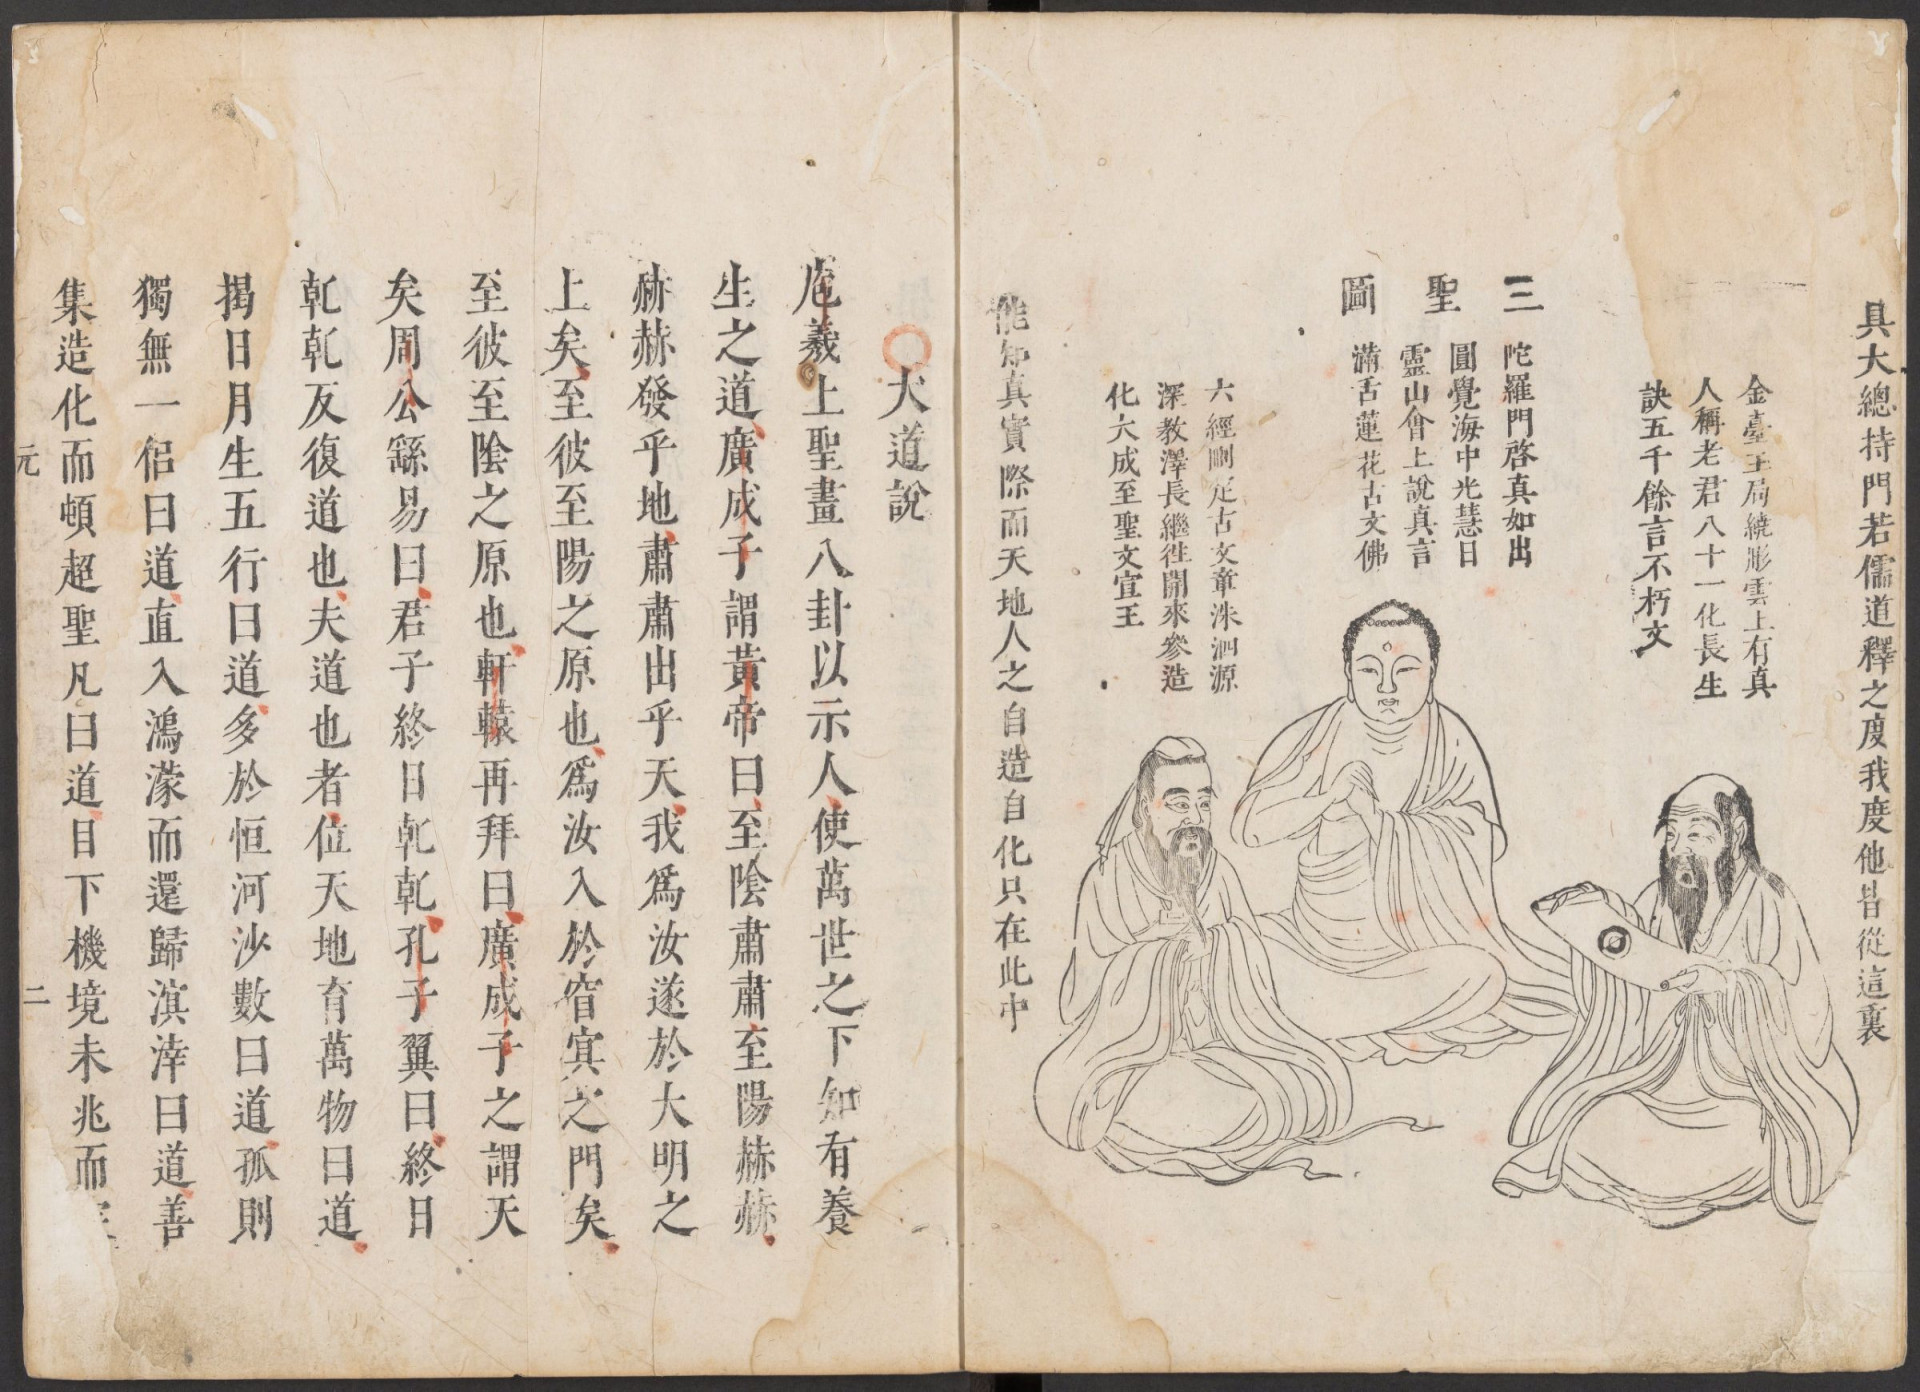 具大總持門若儒道釋之度我度他皆從這裏
金臺玉局繞彤雲上有真
人稱老君八十一化長生
訣五千餘言不朽文
三聖圖
陀羅門啓真如出
圓覺海中光慧日
靈山會上說真言
滿舌蓮花古文佛
六經刪定古文章洙泗源
深教澤長繼徃開來參造
化大成至聖文宣王
能知真實際而天地人之自造自化只在此中
大道說
庖羲上聖畫八卦以示人使萬世之下知有養
生之道廣成子謂黃帝曰至陰肅肅至陽赫赫
赫赫發乎地肅肅出乎天我爲汝遂於大明之
上矣至彼至陽之原也爲汝入於窅冥之門矣
至彼至陰之原也軒轅再拜曰廣成子之謂天
矣周公繇易曰君子終日乹乹孔子翼曰終日
乹乹反復道也夫道也者位天地育萬物曰道
揭日月生五行曰道多於恒河沙數曰道孤則
獨無一侶曰道直入鴻濛而還歸溟涬曰道善
集造化而頓超聖凡曰道目下機境未兆而
元 二